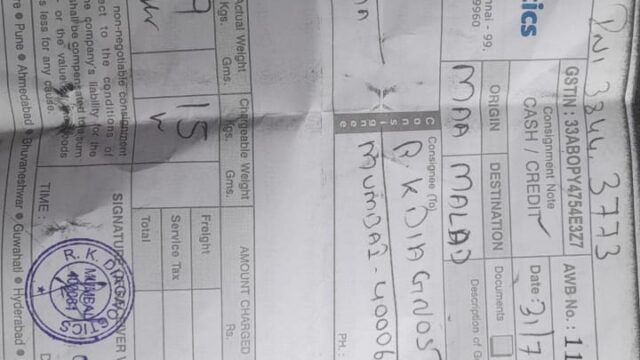 PNI 3844. 3773
GSTIN : 33ABOPY4754E3Z7
AWB No. : 11
Consignment Note
CASH / CREDIT ✓
Date : 31/7
tics
nnai - 99.
9960
ORIGIN
DESTINATION
Documents
MAA
MALAD
Description of G
Consignee
Consignee (To)
R.K DIAGNOS
MUMBAI - 40006
PH. :
Actual Weight
Chargeable Weight
AMOUNT CHARGED
Kgs.
Gms.
Kgs.
Gms.
Rs.
9
15
Freight
Service Tax
Total
non-negotiable consignment
ect to the conditions of
the company's liability for the
shall be compensated
or the value
s less for any cause.
SIGNATURE
TIME :
R. K. DIAGNOSTICS
MUMBAI
re ● Pune ● Ahmedabad ● Bhuvaneshwar ● Guwahati ● Hyderabad ●